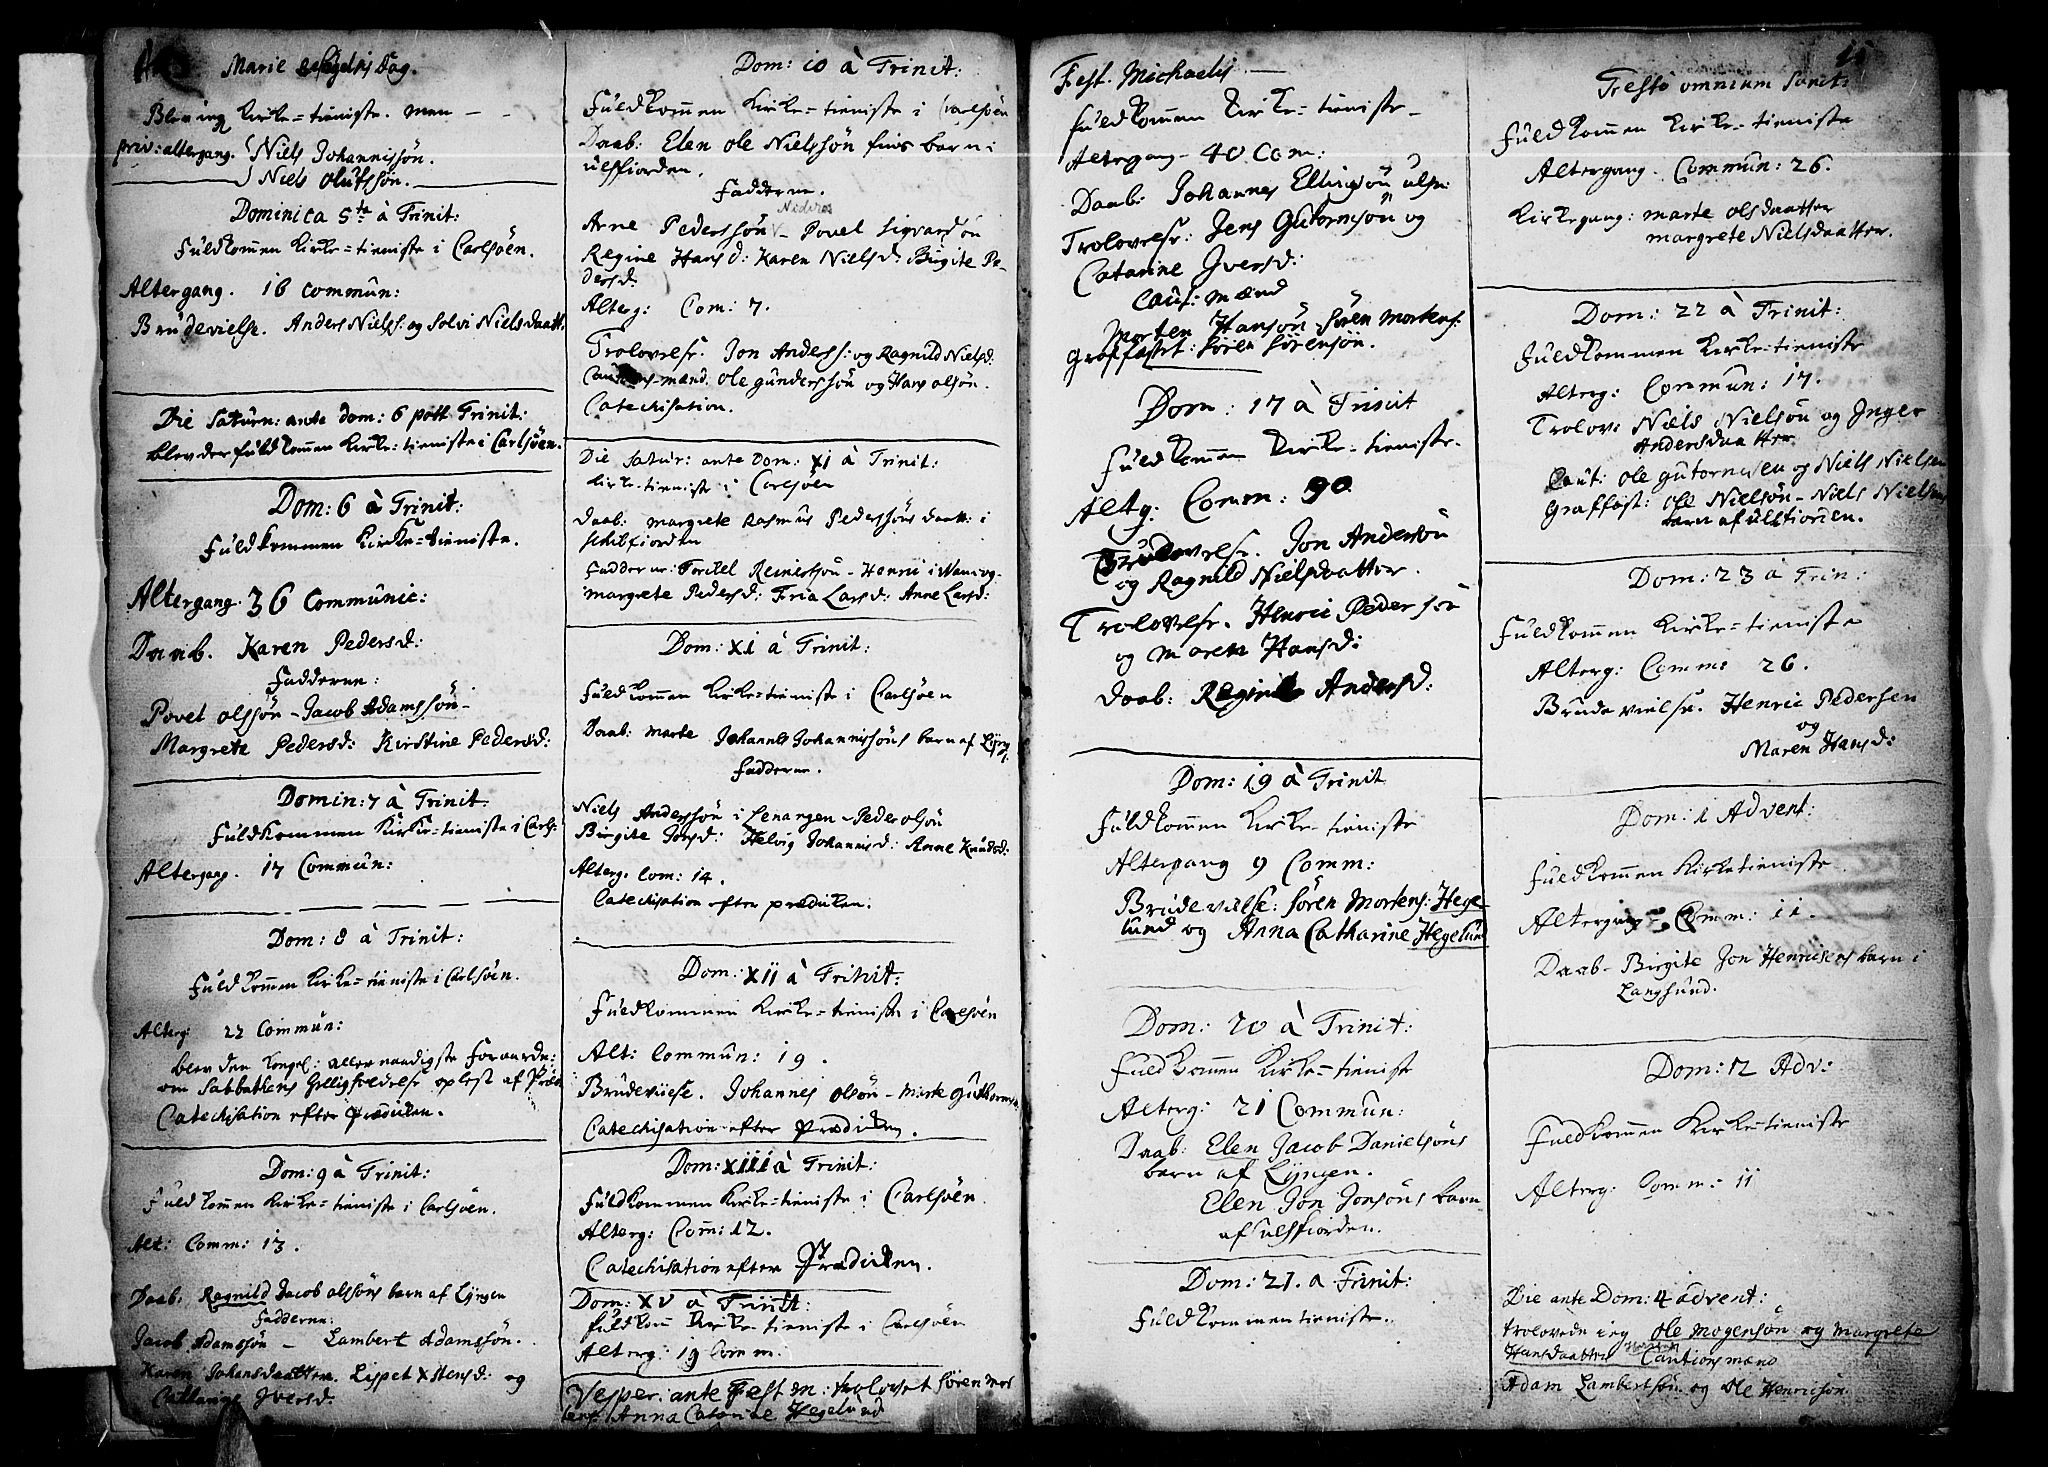 Marie Dag.
Blev ing kirke=tieniste. men
priv: altergang. Niels Johannissøn.
Niels olufssøn.
Dominica 5te â Trinit:
Fuldkommen kirke=tieniste i Carlsöen.
Altergang. 16 commun:
Brudevielse. Anders Nielss: og Solvi Nielsdaatt.
Die Saturn: ante Dom: 6 post Trinit:
blev der fuldkommen kirke=tieniste i Carlsöen.
Dom: 6 â Trinit:
Fuldkommen kirke=tieniste.
Altergang. 36 Communic:
Daab. Karen Pedersd:
Fadderne:
Povel olssön – Jacob Adamssön –
Margrete Pedersd: Kirstine Pedersd:
Domin: 7 â Trinit:
Fuldkommen Kirke=tieniste i Carls:
Altergang. 17 Commun:
Dom: 8 â Trinit:
Fuldkommen kirke=tieniste i Carlsöen.
Alterg: 22 Commun:
blev den kongel: allernaadigste Foraardn:
om Sabbathens Helligholdelse oplest af Præd
Catechisation efter Prædiken.
Dom: 9 â Trinit:
Fuldkommen kirke=tieniste i Carlsöen.
Alt: Comm: 13.
Daab. Ragnild Jacob olssöns barn af Lyngen
Fadderne:
Jacob Adamssön – Lambert Adamssön.
Karen Johansdaatter. Lispet Stensd: og
Catharine Iversd.
Dom: 10 â Trinit:
Fuldkommen kirke=tieniste i Carlsöen
Daab: Elen ole Nielssön fins barn i
ulsfiorden.
Fadderne.
Arne Pederssön – Povel Sigvardsön
Regine Hansd: Karen Nielsd: Birgite Pe-
dersd.
Alterg: Com: 7.
Trolovelse. Jon Anderss: og Ragnild Nielsd.
mænd. ole gunderssön og Hans olsön.
Catechisation.
Die Satur: ante Dom: XI â Trinit:
kirke-tieniste i Carlsöen
Daab: margrete Rasmus Pederssöns daatt: i
skibfiorden
Fadderne: Torkel Reinertsön – Henric i og
margrete Pedersd: Fria Larsd: Anne Larsd:
Dom: XI â Trinit:
Fuldkommen kirke=tieniste i Carlsöen
Daab: marte Johannes Johannissöns barn af Lyng.
Fadderne.
Niels Anderssön i Lenangen – Peder olsön
Birgite Jonsd: Helvig Johannisd: Anne Knudsd:
Alterg. Com: 14.
Catechisation efter prædiken.
Dom: XII â Trinit:
Fuldkommen kirke=tieniste i Carlsöen
Alt: Commun: 19.
Brudeviese. Johannes olsön – Marte
Catechisation efter Prædiken.
Dom: XIII â Trinit:
Fuldkommen kirke=tieniste i Carlsöen
Alterg: Com: 12.
Catechisation efter Prædiken.
Dom: XV â Trinit:
fuldkom kirke tieniste i Carlsöen
Alterg: 19 Comm.
Vesper: ante Fest M: trolovet Sören Mor
tens: Anna Catarine Hegelund
Fest. Michaelis
fuldkommen kirke-tieniste
Altergang – 40 Com:
Daab: Johannes Ellingsön ulsf:
Trolovelse: Jens Gutormsön og
Catarine Iversd:
Caut: mænd
Morten Hansön Sören Mortens:
Graffæst: Sören Sörensön.
Dom: 17 â Trinit
fuldkommen kirke-tieniste.
Altg: Comm: 90
Brudevielse. Jon Andersön
og Ragnild Nielsdaatter.
Trolovelse. Henric Pedersön
og Maren Hansd:
Daab: Andersd:
Dom: 19 â Trinit
Fuldkommen kirke-tieniste
Altergang 9 Comm:
Brudevielse: Sören Mortens: Hege-
lund og Anna Catharine Hegelund
Dom: 20 â Trinit:
Fuldkommen kirke=tieniste
Alterg: 21 Commun:
Daab: Elen Jacob Danielsöns
barn af Lyngen.
Elen Jon Jonsöns barn
af ulsfiorden.
Dom: 21. â Trinit:
Fuldkommen tieniste.
15
Festo omnium Sanct:
Fuldkommen kirke-tieniste
Altergang. Commun: 26.
kirkegang: marte olsdaatter
margrete Nielsdaatter.
Dom: 22 â Trinit:
Fuldkommen kirke-tieniste
Alterg: Commun: 17.
Trolov: Niels Nielsön og Inger
Andersdaatter
Caut: ole gutormsen og Niels Nielsen
Graffæst: ole Nielsön – Niels Nielsens
barn af ulsfiorden.
Dom: 23 â Trin:
Fuldkommen kirke=tieniste
Alterg: Comm: 26.
Brudevielse. Henric Pedersen
og
Maren Hansd:
Dom: 1 Advent:
Fuldkommen kirketieniste
Altergang – Comm: 11.
Daab – Birgite Jon Henricsens barn i
Langsund.
Dom: 2 Adv:
Fuldkommen kirke-tieniste
Alterg: Comm: 11
Die ante Dom: 4 advent:
trolovede ieg ole Mogensön og Margrete
Hansdaatter Cautionsmænd
Adam Lambertsön og Ole Henricsön.